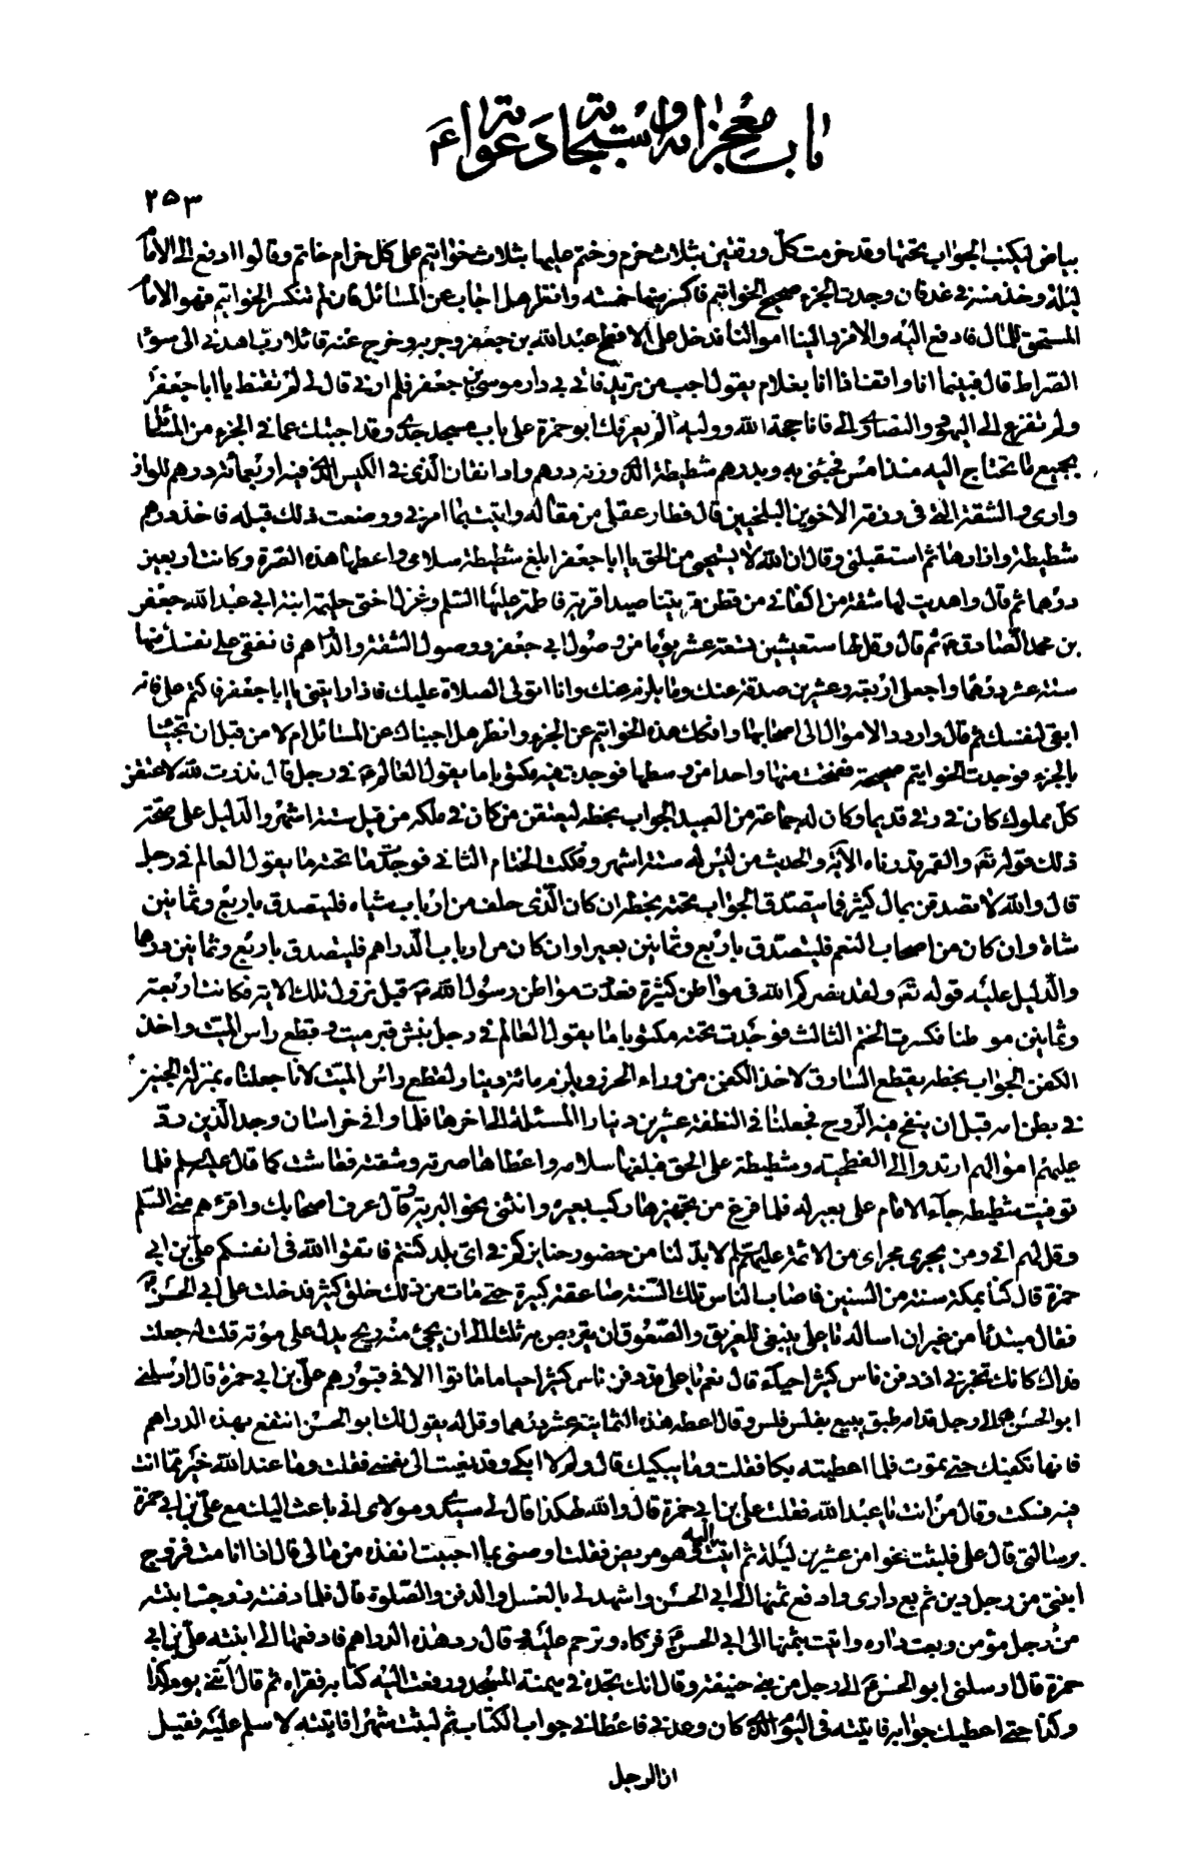 باب معجزاته واستجابة دعواته ع
٢٥٣
بياض ليكتب الجواب تحتها وقد خرمت كل ورقتين بثلاث خزم وختم عليها بثلاث خواتيم على كل خزام خاتم وقالوا ادفع الى الامام
ليلة وخذ منه فى غد فان وجدت الجزء صحيح الخواتيم فاكسر منها خمسة وانظر هل اجاب عن المسائل فان لم تنكسر الخواتيم فهو الامام
المستحق للمال فادفع اليه والا فرد الينا اموالنا فدخل على الافطح عبد الله بن جعفر وجربه وخرج عنه قائلا رب اهدنى الى سواء
الصراط قال فبينما انا واقف اذا انا بغلام يقول اجب من تريد فاتى بى دار موسى بن جعفر فلما رانى قال لى لم تقنط يا ابا جعفر
ولم تفزع الى اليهود والنصارى الى فانا حجة الله ووليه الم يعرفك ابو حمزة على باب مسجد جدى وقد اجبتك عما فى الجزء من المسائل
بجميع ما تحتاج اليه منذ امس فجئنى به وبدرهم شطيطة الذى وزنه درهم ودانقان الذى فى الكيس الذى فيه اربعمائة درهم للواز
وارى والشقة التى فى رزمة الاخوين البلخيين قال فطار عقلى من مقاله واتيت بما امرنى ووضعت ذلك قبله فاخذ درهم
شطيطة وازارها ثم استقبلنى وقال ان الله لا يستحيى من الحق يا ابا جعفر ابلغ شطيطة سلامى واعطها هذه الصرة وكانت اربعين
درهما ثم قال واهديت لها شقة من اكفانى من قطن قريتنا صيدا قرية فاطمة عليها السلم وغزل اختى حليمة ابنة ابى عبد الله جعفر
بن محمد الصادق ع ثم قال وقل لها ستعيشين تسعة عشر يوما من وصول ابى جعفر ووصول الشقة والدراهم فانفقى على نفسك منها
ستة عشر درهما واجعلى اربعة وعشرين صدقة عنك وما يلزم عنك وانا اتولى الصلاة عليك فاذا رايتنى يا ابا جعفر فاكتم على فانه
ابقى لنفسك ثم قال واردد الاموال الى اصحابها وافكك هذه الخواتيم عن الجزء وانظر هل اجبناك عن المسائل ام لا من قبل ان تجيئنا
بالجزء فوجدت الخواتيم صحيحة ففتحت منها واحدا من وسطها فوجدت فيه مكتوبا ما يقول العالم ع فى رجل قال نذرت لله لاعتقن
كل مملوك كان فى رقى قديما وكان له جماعة من العبيد الجواب بخطه ليعتقن من كان فى ملكه من قبل ستة اشهر والدليل على صحة
ذلك قوله تع والقمر قدرناه الآية والحديث من ليس له ستة اشهر وفككت الختام الثانى فوجدت ما تحته ما يقول العالم فى رجل
قال والله لاتصدقن بمال كثير فما يتصدق الجواب تحته بخطه ان كان الذى حلف من ارباب شياه فليتصدق باربع وثمانين
شاة وان كان من اصحاب النعم فليتصدق باربع وثمانين بعيرا وان كان من ارباب الدراهم فليتصدق باربع وثمانين درهما
والدليل عليه قوله تع ولقد نصركم الله فى مواطن كثيرة فعددت مواطن رسول الله ص قبل نزول تلك الاية فكانت اربعة
وثمانين موطنا فكسرت الختم الثالث فوجدت تحته مكتوبا ما يقول العالم فى رجل نبش قبر ميت وقطع راس الميت واخذ
الكفن الجواب بخطه يقطع السارق لاخذ الكفن من وراء الحرز ويلزم مائة دينار لقطع راس الميت لانا جعلناه بمنزلة الجنين
فى بطن امه قبل ان ينفخ فيه الروح فجعلنا فى النطفة عشرين دينارا المسئلة الى اخرها فلما وافى خراسان وجد الذين رد
عليهم اموالهم ارتدوا الى الفطحية وشطيطة على الحق فبلغها سلامه واعطاها صرته وشقته فعاشت كما قال عليه السلم فلما
توفيت شطيطة جاء الامام على بعير له فلما فرغ من تجهيزها ركب بعيره وانثنى نحو البرية وقال عرف اصحابك واقرءهم منى السلم
وقل لهم انى ومن يجرى مجراى من الائمة عليهم السلم لا بد لنا من حضور جنايزكم فى اى بلد كنتم فاتقوا الله فى انفسكم على بن ابى
حمزة قال كنا بمكة سنة من السنين فاصاب الناس تلك السنة صاعقة كبيرة حتى مات من ذلك خلق كثير فدخلت على ابى الحسن ع
فقال مبتدئا من غير ان اساله يا على ينبغى للغريق والصعوق ان يتربص به ثلثا الى ان يجئ منه ريح يدل على موته قلت له جعلت
فداك كانك تخبرنى اذ دفن ناس كثير احياء قال نعم يا على قد دفن ناس كثير احياء ما ماتوا الا فى قبورهم على بن ابى حمزة قال ارسلنى
ابو الحسن ع الى رجل قدامه طبق يبيع بفلس فلس وقال اعطه هذه الثمانية عشر درهما وقل له يقول لك ابو الحسن انتفع بهذه الدراهم
فانها تكفيك حتى تموت فلما اعطيته بكا فقلت وما يبكيك قال ولم لا ابكى وقد نعيت الى نفسى فقلت وما عند الله خير مما انت
فيه فسكت وقال من انت يا عبد الله فقلت على بن ابى حمزة قال والله لهكذا قال لى سيدى ومولاى انى باعث اليك مع على بن ابى حمزة
برسالتى قال على فلبثت نحوا من عشرين ليلة ثم اتيت اليه وهو مريض فقلت اوصنى بما احببت انفذه من مالى قال اذا انا مت فزوج
ابنتى من رجل دين ثم بع دارى وادفع ثمنها الى ابى الحسن واشهد لى بالغسل والدفن والصلوة قال فلما دفنته زوجت ابنته
من رجل مؤمن وبعت داره واتيت بثمنها الى ابى الحسن ع فزكاه وترحم عليه وقال رد هذه الدراهم فادفعها الى ابنته على بن ابى
حمزة قال ارسلنى ابو الحسن ع الى رجل من بنى حنيفة وقال انك تجده فى ميمنة المسجد ورفعت اليه كتابه فقراه ثم قال ائتنى يوم كذا
وكذا حتى اعطيك جوابه فاتيته فى اليوم الذى كان وعدنى فاعطانى جواب الكتاب ثم لبثت شهرا فاتيته لاسلم عليه فقيل
ان الرجل